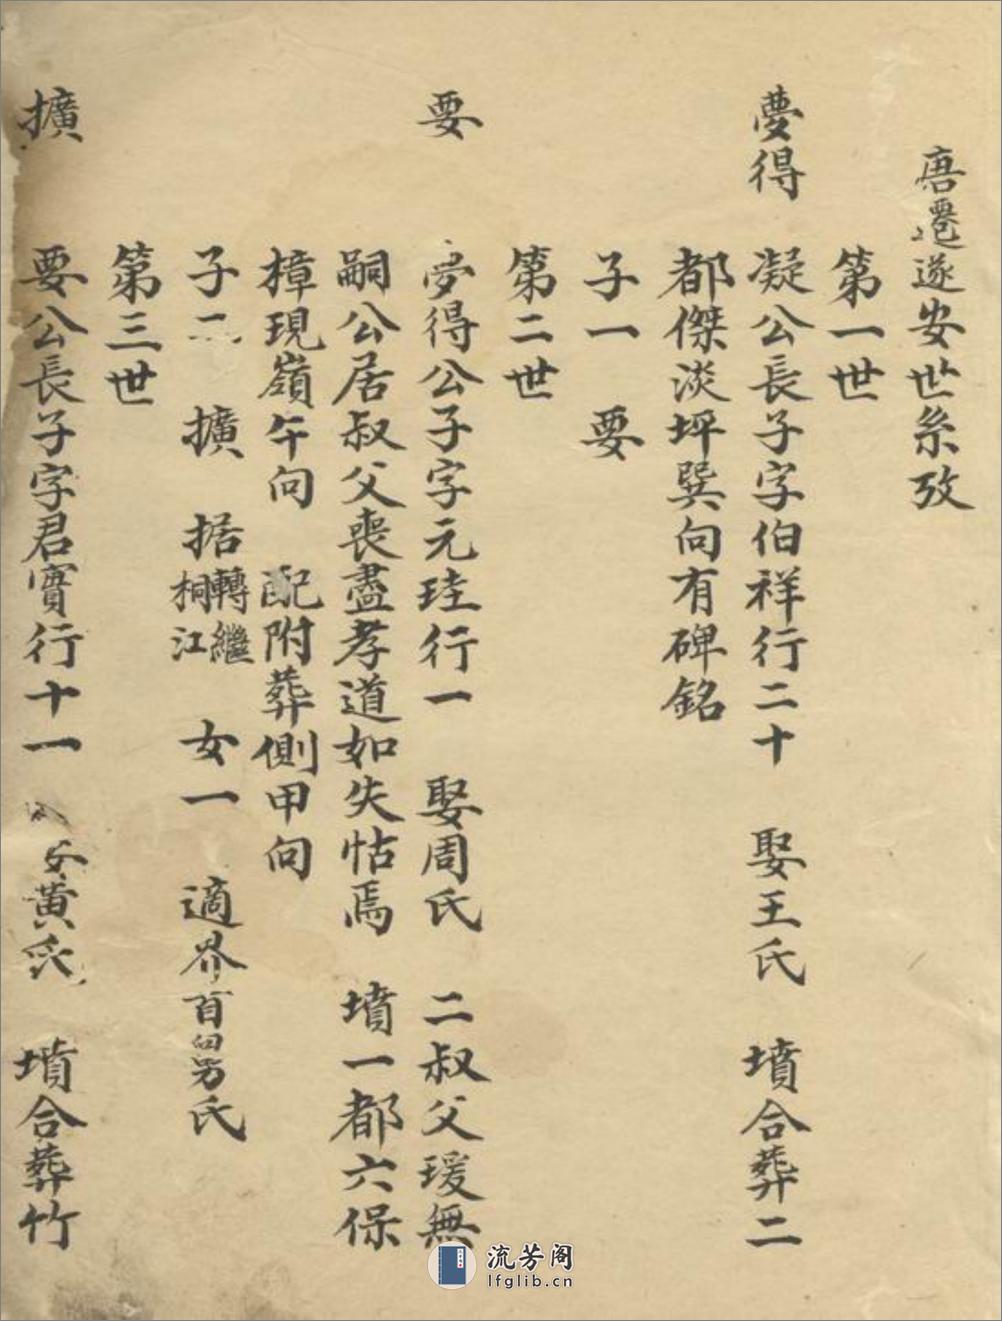 唐遷遂安世系攷
第一世
夢得 凝公長子字伯祥行二十 娶王氏 墳合葬二
都傑淡坪巽向有碑銘
子一 要
第二世
要 夢得公子字元珪行一 娶周氏 二叔父瑗無
嗣公居叔父喪盡孝道如失怙焉 墳一都六保
樟現嶺午向 配附葬側甲向
子二 擴 据轉繼桐江 女一 適界首 氏
第三世
擴 要公長子字君實行十一 黃氏 墳合葬竹
流芳阁
lfglib.cn